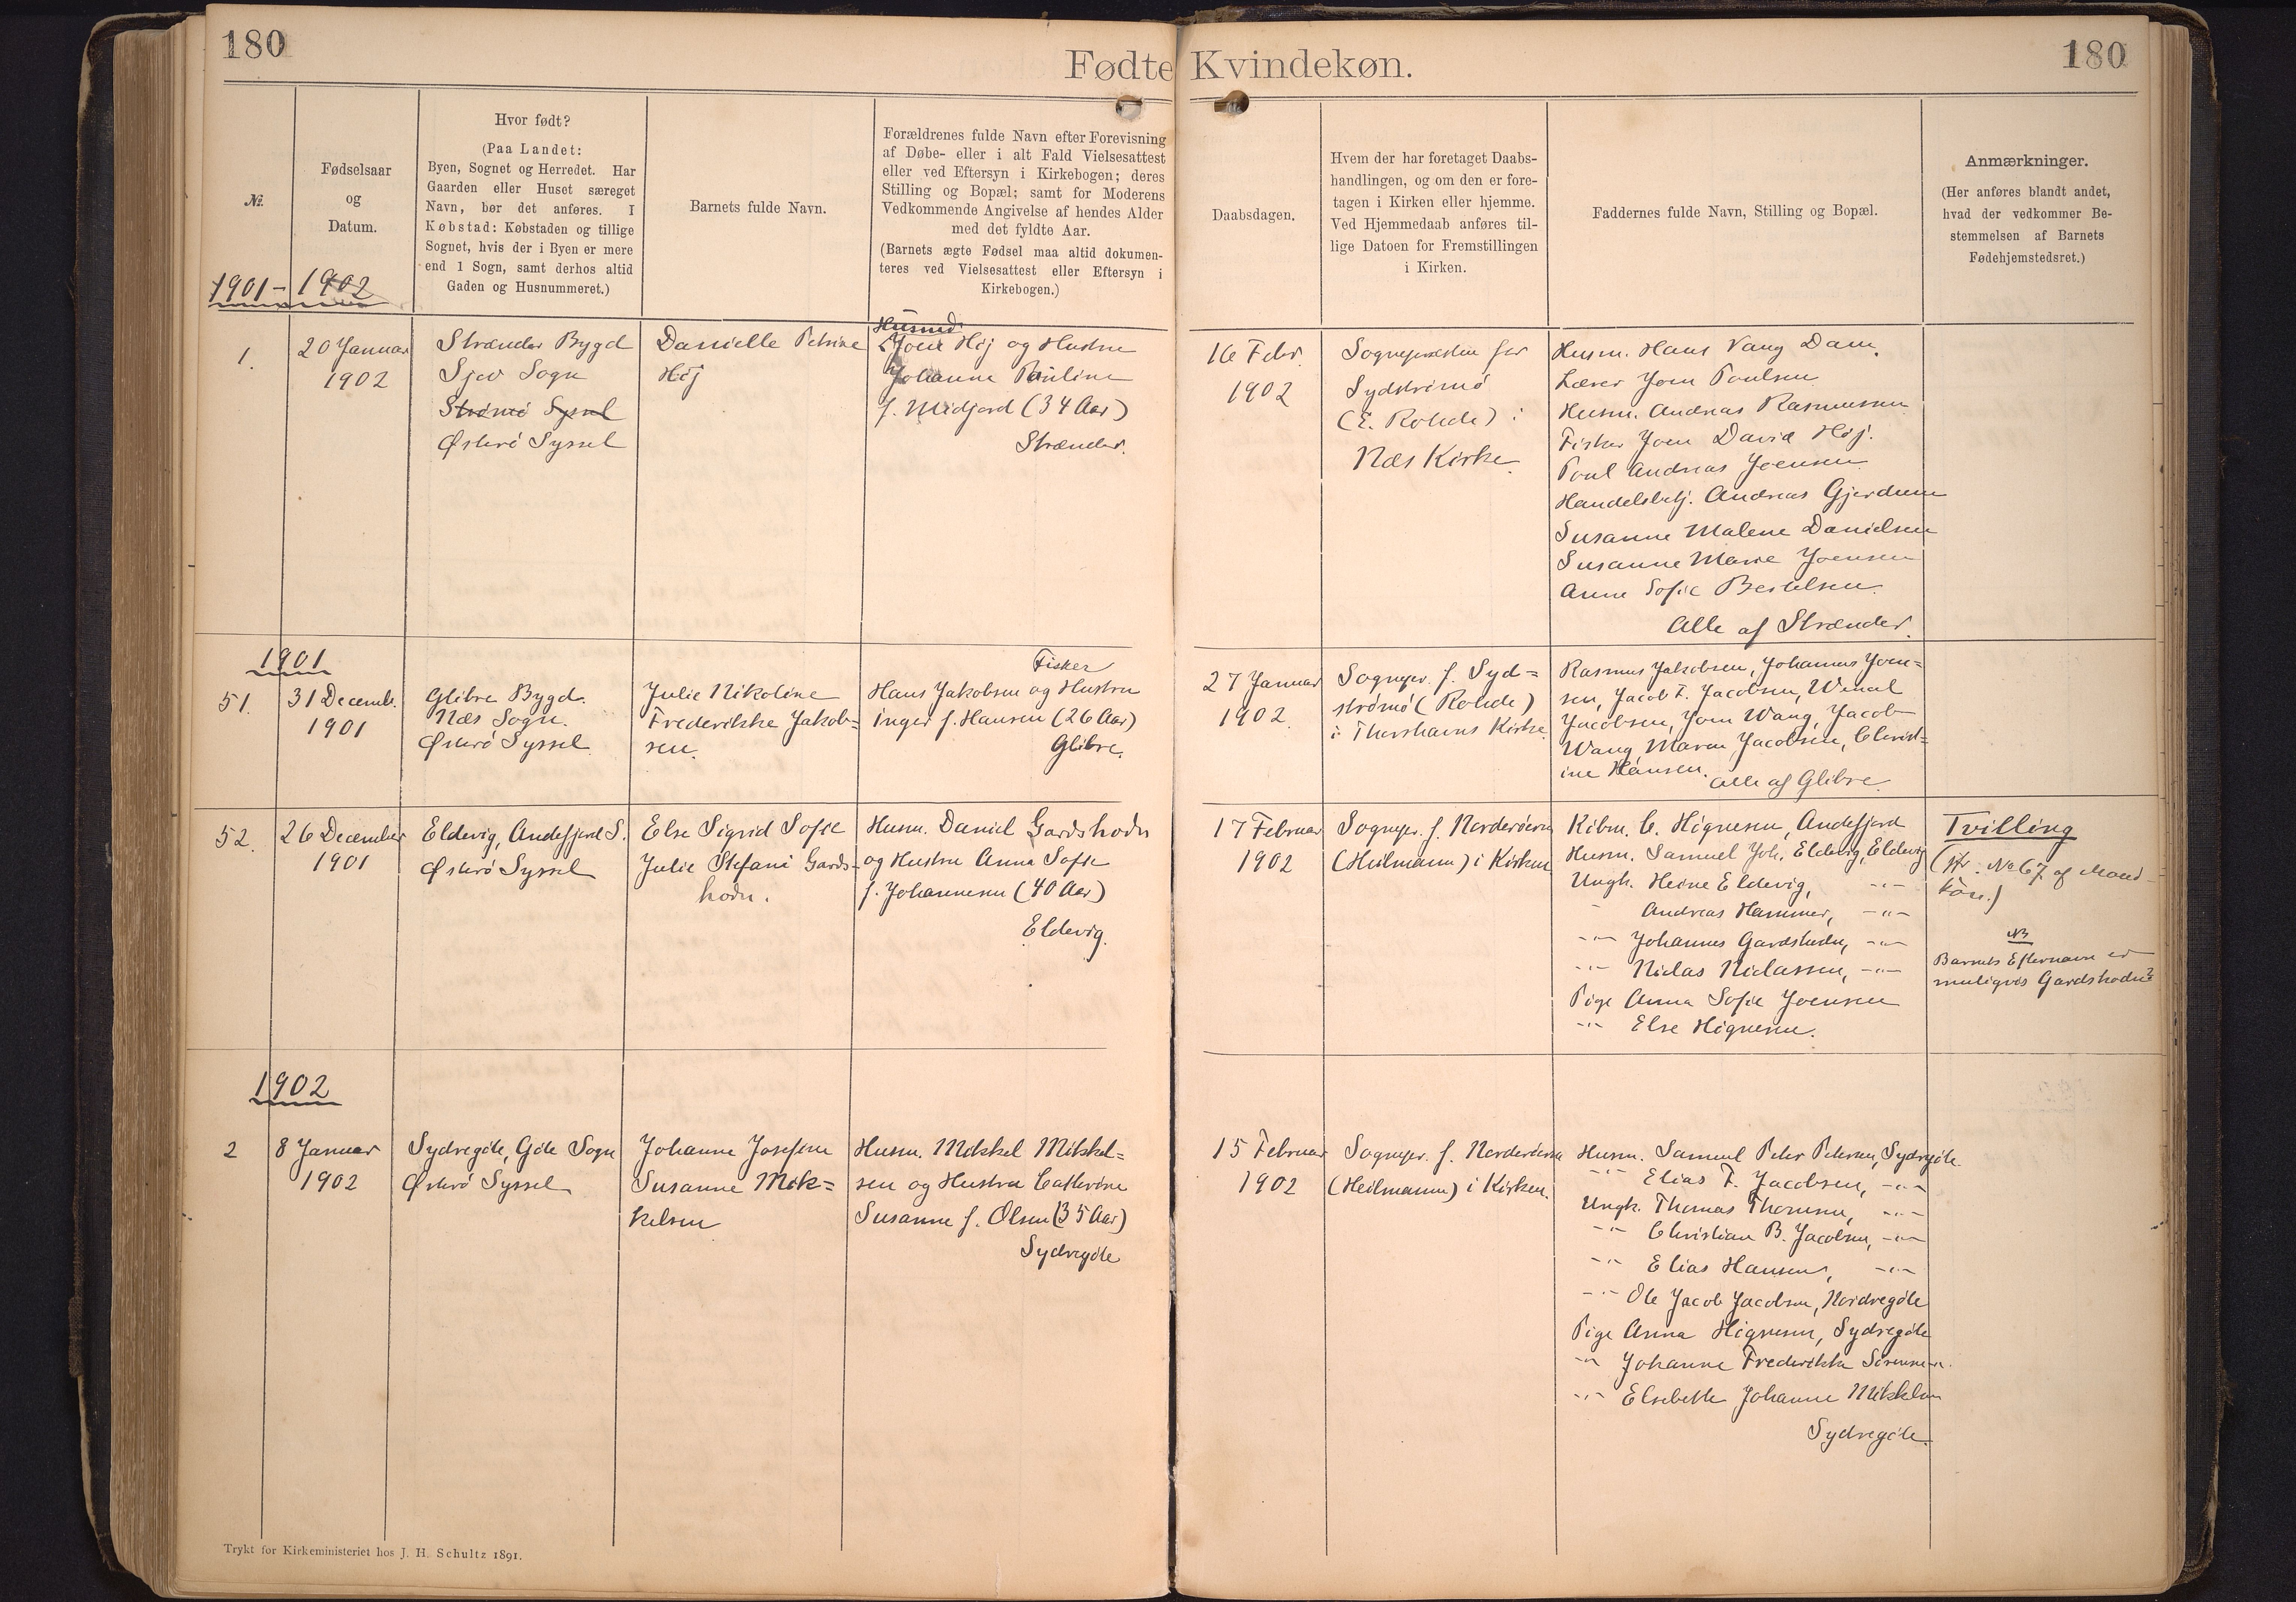 180
Fødte Kvindekøn.
180
№.
Fødselsaar
og
Datum.
Hvor født?
(Paa Landet:
Byen, Sognet og Herredet. Har
Gaarden eller Huset særeget
Navn, bør det anføres. I
Købstad: Købstaden og tillige
Sognet, hvis der i Byen er mere
end 1 Sogn, samt derhos altid
Gaden og Husnummeret.)
Barnets fulde Navn.
Forældrenes fulde Navn efter Forevisning
af Døbe- eller i alt Fald Vielsesattest
eller ved Eftersyn i Kirkebogen; deres
Stilling og Bopæl; samt for Moderens
Vedkommende Angivelse af hendes Alder
med det fyldte Aar.
(Barnets ægte Fødsel maa altid dokumen-
teres ved Vielsesattest eller Eftersyn i
Kirkebogen.)
Daabsdagen.
Hvem der har foretaget Daabs-
handlingen, og om den er fore-
tagen i Kirken eller hjemme.
Ved Hjemmedaab anføres til-
lige Datoen for Fremstillingen
i Kirken.
Faddernes fulde Navn, Stilling og Bopæl.
Anmærkninger.
(Her anføres blandt andet,
hvad der vedkommer Be-
stemmelsen af Barnets
Fødehjemstedsret.)
1901-1902
1.
20 Januar
1902
Strænder Bygd
Sjov Sogn
Strømø Syssel
Østerø Syssel
Danielle Petrine
Høj
Husmd.
Joen Høj og Hustru
Johanne Pauline
f. Midjord (34 Aar)
Strænder.
16 Febr.
1902
Sognepræsten for
Sydstrømø
(E. Rohde) i
Næs Kirke.
Husm. Hans Vang Dam.
Lærer Joen Poulsen
Husm. Andreas Rasmussen
Fisker Joen David Høj.
Poul Andreas Joensen
Handelsbetj. Andreas Gjerdum
Susanne Malene Danielsen
Susanne Marie Joensen
Anne Sofie Bertelsen.
Alle af Strænder.
1901
51.
31 Decemb.
1901
Glibre Bygd.
Næs Sogn.
Østerø Syssel
Julie Nikoline
Frederikke Jakob-
sen.
Fisker
Hans Jakobsen og Hustru
Inger f. Hansen (26 Aar)
Glibre.
27 Januar
1902.
Sognepr. f. Syd-
strømø (Rohde)
i Thorshavns Kirke.
Rasmus Jakobsen, Johannes Joen-
sen, Jacob F. Jacobsen,
Jacobsen, Joen Wang, Jacob
Wang, Maren Jacobsen, Christ-
ine Hansen.
alle af Glibre.
52.
26 December
1901
Eldevig, Andefjord S.
Østerø Syssel
Else Sigrid Sofie
Julie Stefani Gards-
hodn.
Husm. Daniel Gardshodn
og Hustru Anna Sofie
f. Johannesen (40 Aar)
Eldevig.
17 Februar
1902
Sognepr. f. Norderøerne
(Heilmann) i Kirken
Købm. C. Høgnesen, Andefjord
Husm. Samuel Joh. Eldevig, Eldevig
Ungk. Heine Eldevig, -"-
Andreas Hammer, -"-
-"- Johannes Gardshodn, -"-
-"- Niclas Niclassen, -"-
Pige Anna Sofie Joensen
-"- Else Høgnesen.
Tvilling
(Kfr. No 67 af Mand-
køn.)
NB
Barnets Efternavn er
muligvis Gardshodn?
1902
2
8 Januar
1902
Sydregøte, Gøte Sogn
Østerø Syssel
Johanne Josefine
Susanne Mik-
kelsen
Husm. Mikkel Mikkel-
sen og Hustru Cathrine
Susanne f. Olsen (35 Aar)
Sydregøte
15 Februar
1902
Sognepr. f. Norderøerne
(Heilmann) i Kirken.
Husm. Samuel Peter Petersen, Sydregøte.
-"- Elias F. Jacobsen, -"-
Ungk. Thomas Thomsen, -"-
-"- Christian B. Jacobsen, -"-
-"- Elias Hansen, -"-
-"- Ole Jacob Jacobsen, Nordregøte
Pige Anna Høgnesen, Sydregøte
-"- Johanne Frederikka Sørensen.
-"- Elsebeth Johanne Mikkelsen
Sydregøte.
Trykt for Kirkeministeriet hos J. H. Schultz 1891.